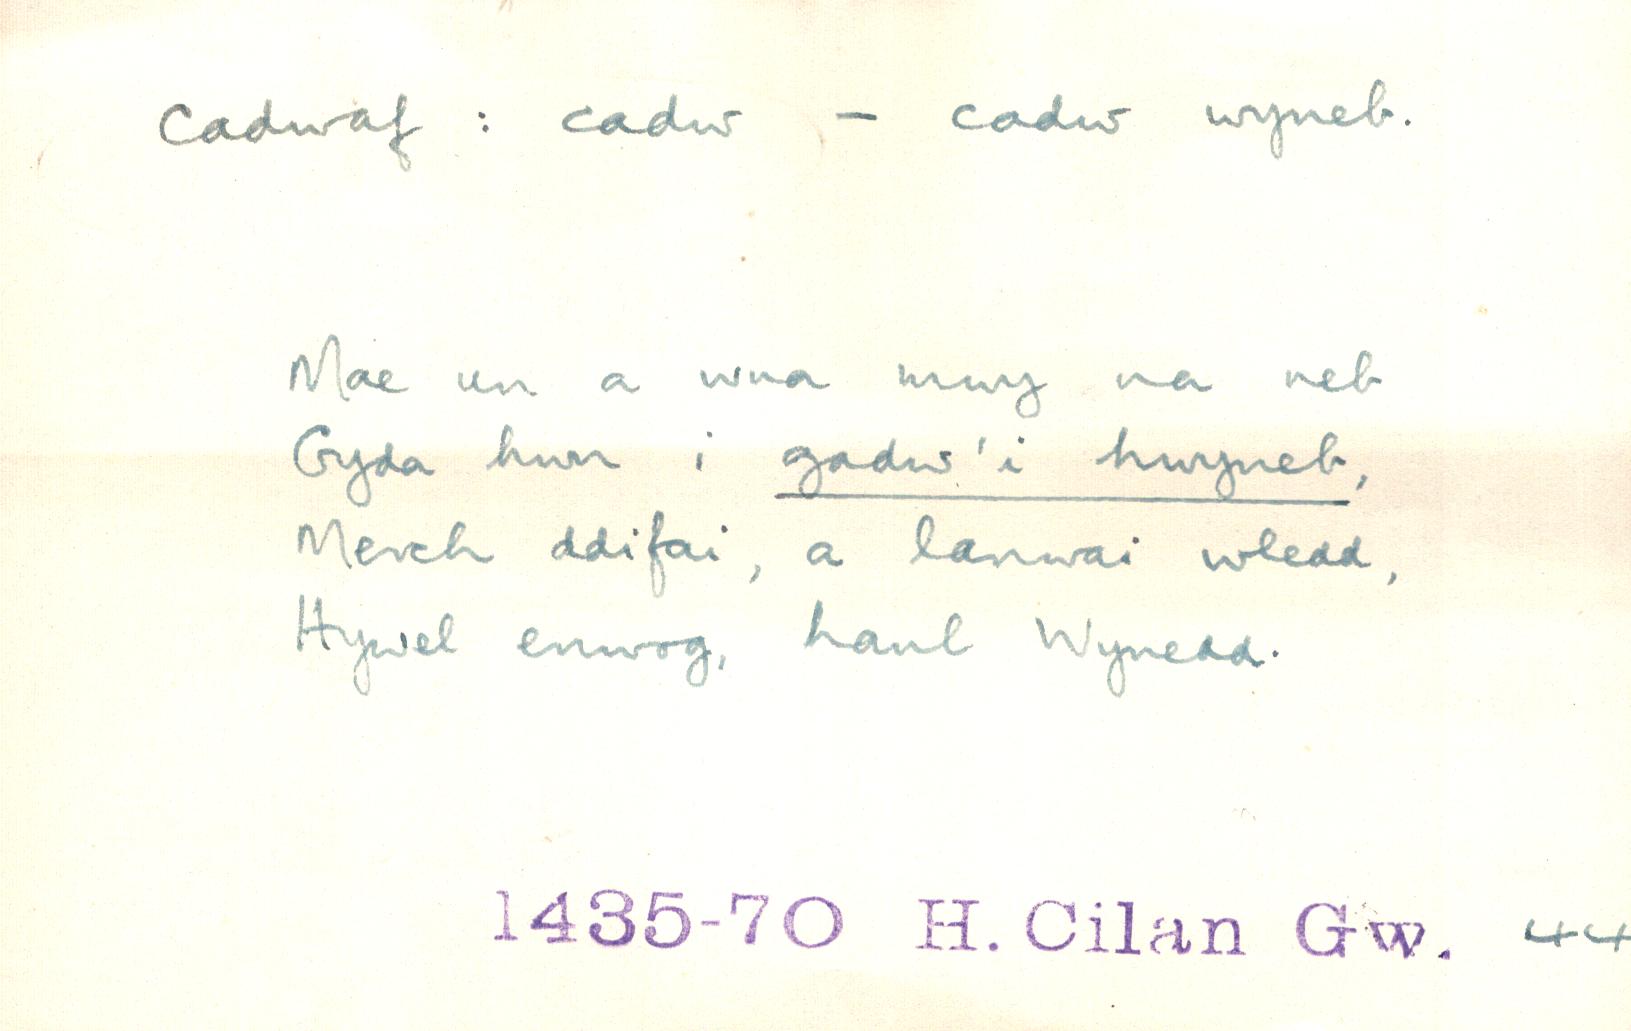 Cadwaf : cadw – cadw wyneb.
Mae un a wna mwy na neb
Gyda hwn i gadw'i hwyneb,
Merch ddifai, a lanwai wledd,
Hywel enwog, haul Wynedd.
1435-70 H. Cilan Gw. 44